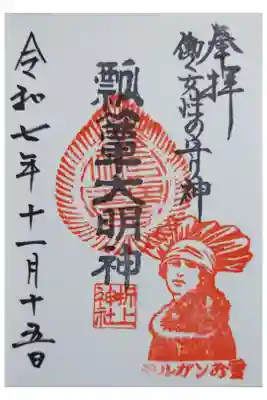 奉拝
働く女性の守神
瓢箪大明神
折上
神社
令和七年十一月十五日
モルガンお雪